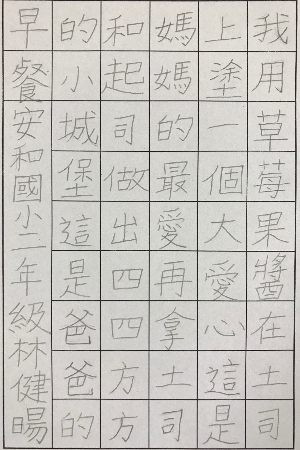 我用草莓果醬在土司
上塗一個大愛心這是
媽媽的最愛再拿土司
和起司做出四四方方
的小城堡這是爸爸的
早餐安和國小二年級林健暘